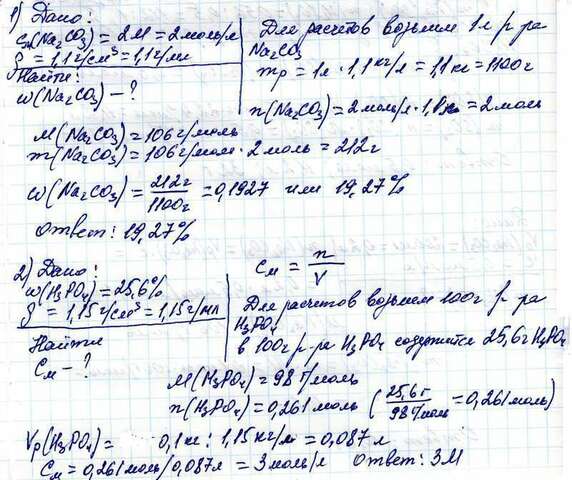 1) Дано:
См(Na2CO3) = 2М = 2моль/л
ρ = 1,1г/см³ = 1,1г/мл
Найти:
ω(Na2CO3) – ?
Для расчетов возьмем 1л р-ра
Na2CO3
mр = 1л · 1,1 кг/л = 1,1 кг = 1100г
n(Na2CO3) = 2моль/л · = 2моль
M(Na2CO3) = 106г/моль
m(Na2CO3) = 106г/моль · 2 моль = 212г
ω(Na2CO3) = 212г/1100г = 0,1927 или 19,27%
Ответ: 19,27%
2) Дано:
ω(H3PO4) = 25,6%
ρ = 1,15г/см³ = 1,15г/мл
Найти
См – ?
См = n/V
Для расчетов возьмем 100г р-ра
H3PO4
в 100г р-ра H3PO4 содержится 25,6г H3PO4
M(H3PO4) = 98 г/моль
n(H3PO4) = 0,261 моль (25,6г/98г/моль = 0,261моль)
Vр(H3PO4) = 0,1кг : 1,15кг/л = 0,087л
См = 0,261моль/0,087л = 3моль/л Ответ: 3М